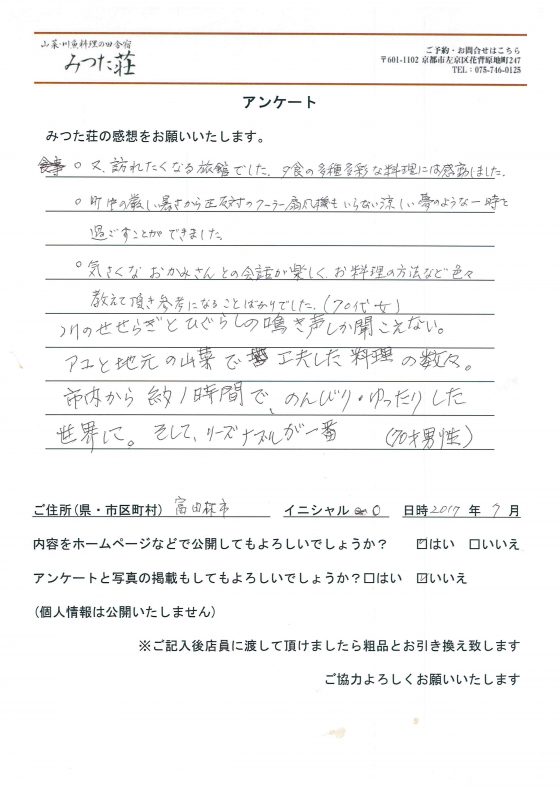 山菜・川魚料理の田舎宿
みつた荘
ご予約・お問合せはこちら
〒601-1102 京都市左京区花脊原地町247
TEL：075-746-0125
アンケート
みつた荘の感想をお願いいたします。
食事 ○ 又、訪れたくなる旅館でした。夕食の多種多彩な料理には感動しました。
○ 町中の厳しい暑さから正反対のクーラー扇風機もいらない涼しい夢のような一時を
過ごすことができました。
○ 気さくなおかみさんとの会話が楽しく、お料理の方法など色々
教えて頂き参考になることばかりでした。(70代女)
川のせせらぎとひぐらしの鳴き声しか聞こえない。
アユと地元の山菜で工夫した料理の数々。
市内から約1時間で、のんびり・ゆったりした
世界に。そして、リーズナブルが一番 (70才男性)
ご住所(県・市区町村) 富田林市 イニシャル O 日時 2017 年 7 月
内容をホームページなどで公開してもよろしいでしょうか？ ☑はい □いいえ
アンケートと写真の掲載もしてもよろしいでしょうか？□はい ☑いいえ
(個人情報は公開いたしません)
※ご記入後店員に渡して頂けましたら粗品とお引き換え致します
ご協力よろしくお願いいたします